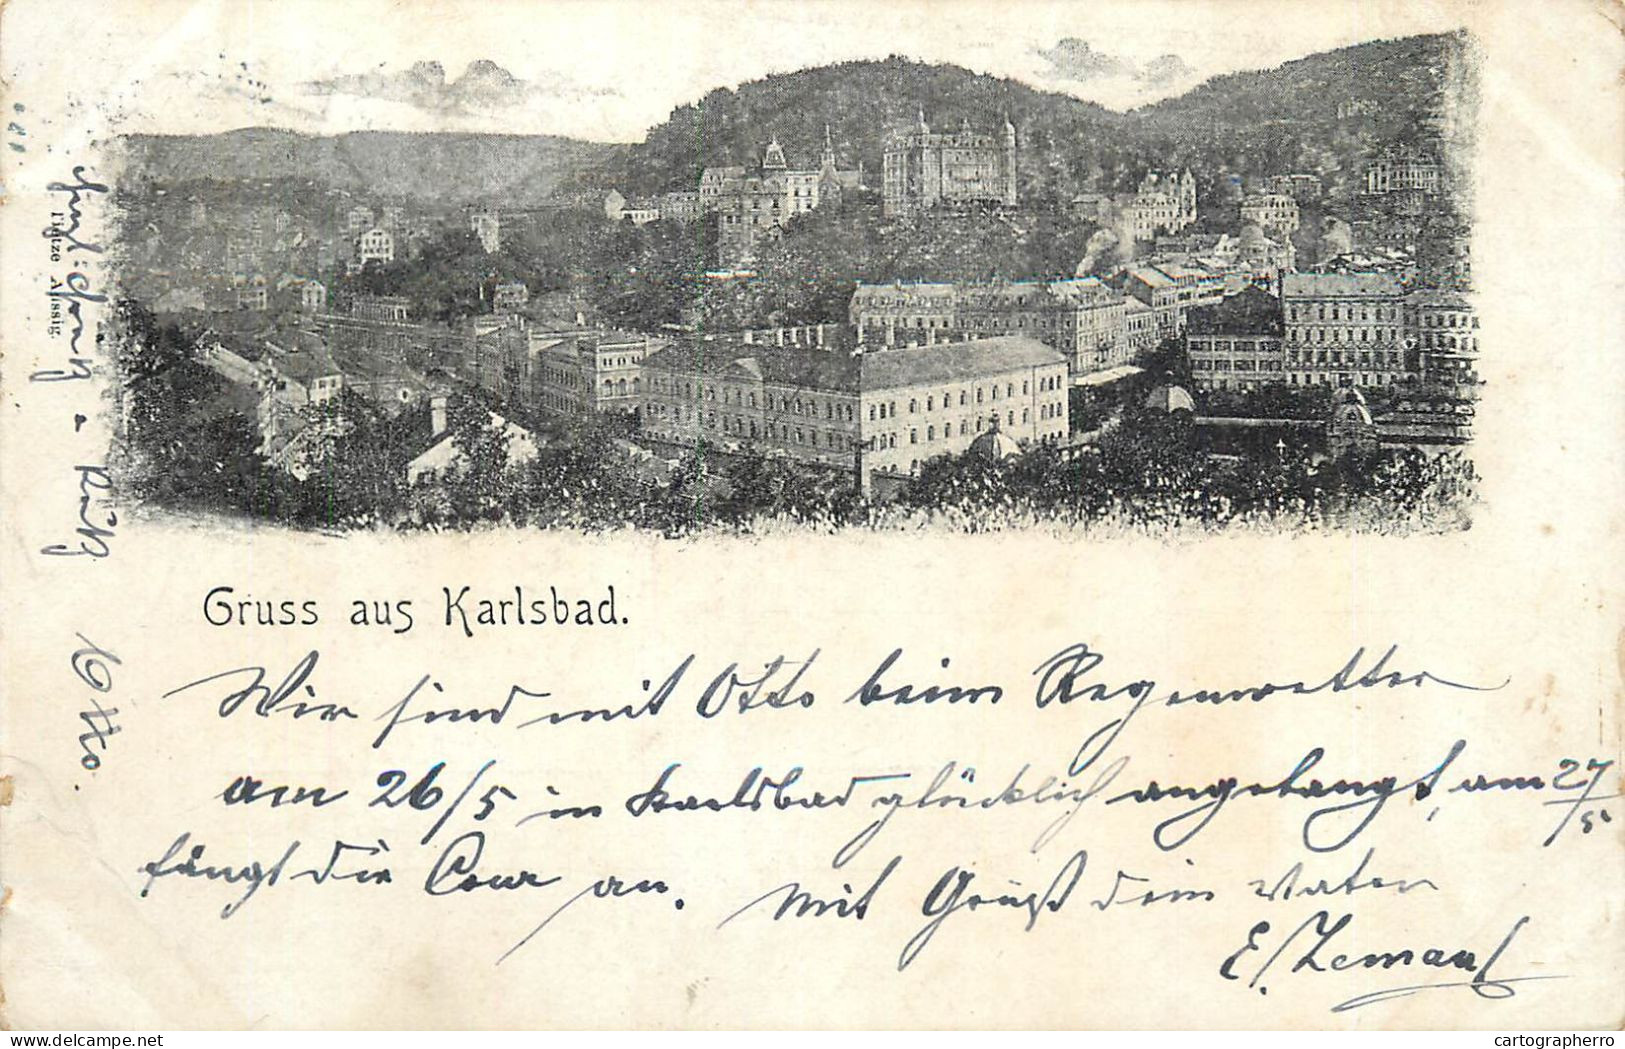 Gruss aus Karlsbad.
Wir sind mit Otto beim Regenwetter
am 26/5 in Karlsbad glücklich angelangt, am 27/5
fängt die Cour an. Mit Gruß dein Vater
E. Zemanl
Otto.
Tietze Aussig.
delcampe.net
cartographerro